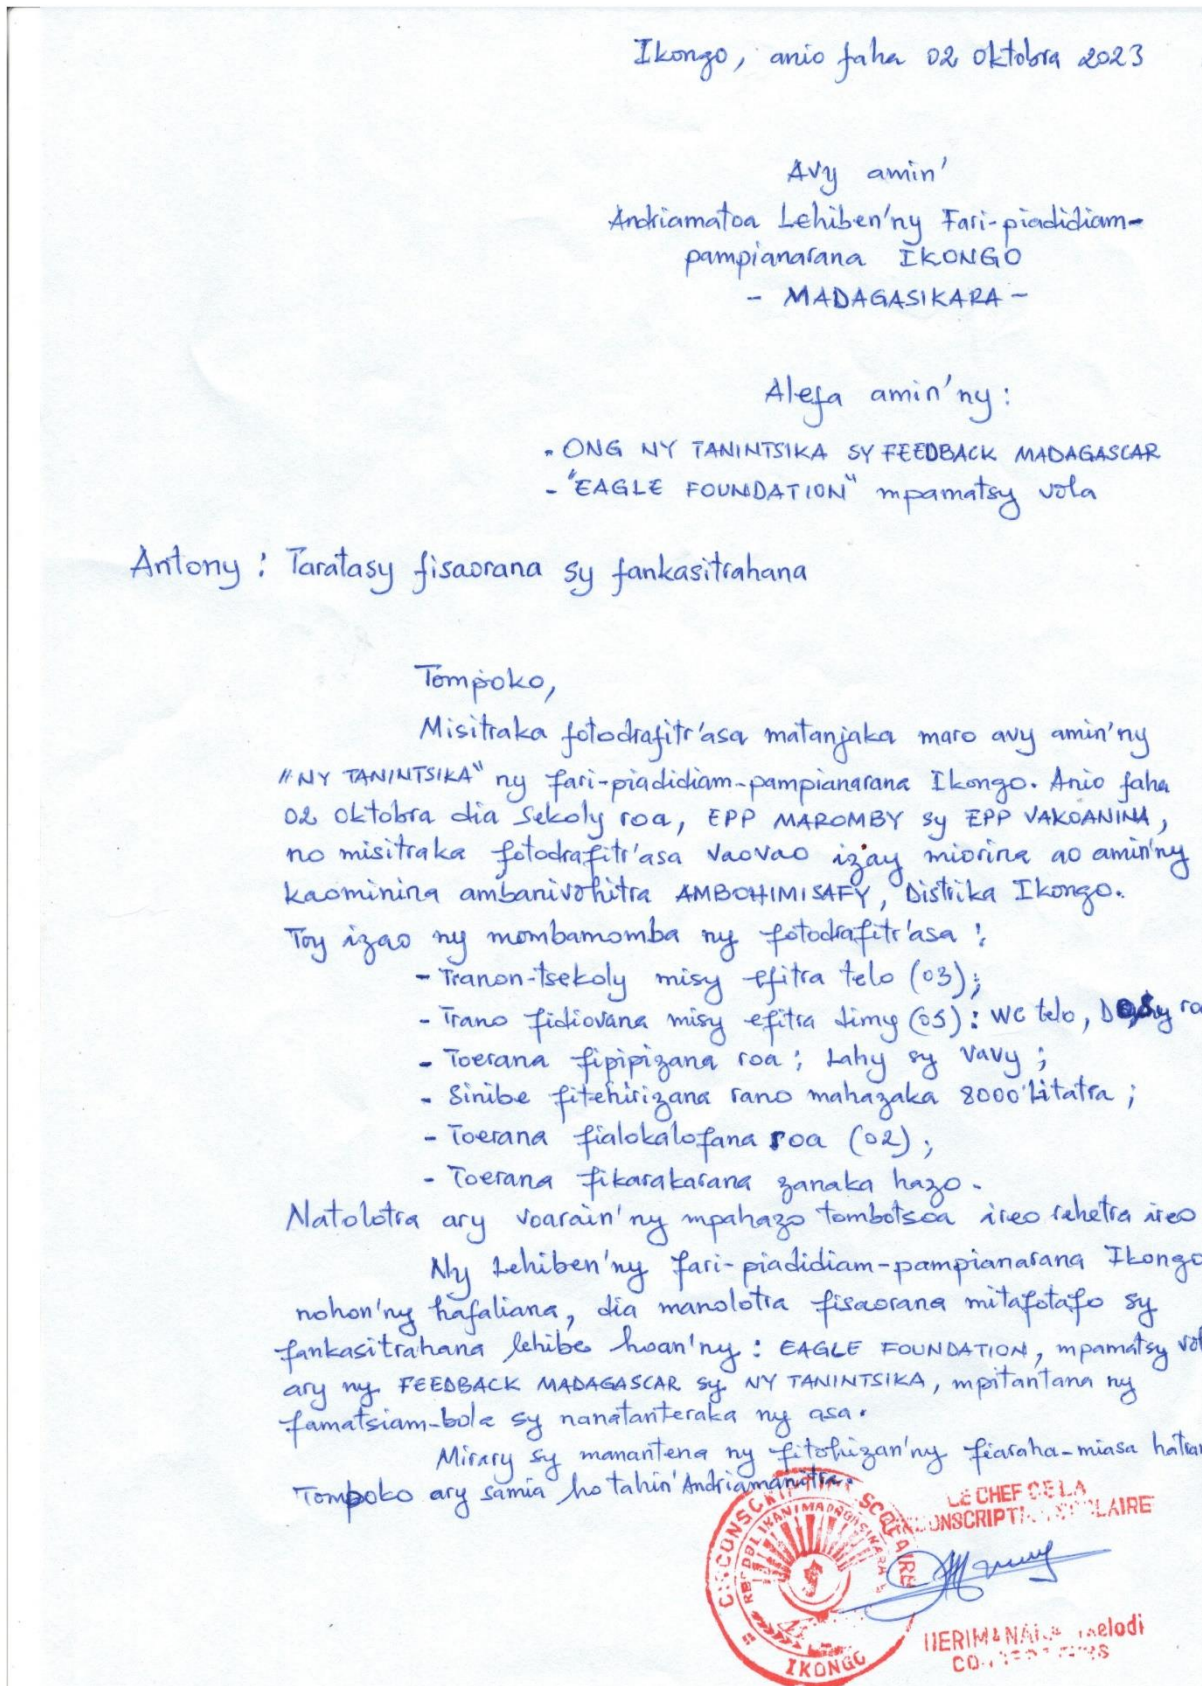 Ikongo, anio faha 02 oktobra 2023
Avy amin'
Andriamatoa Lehiben'ny Fari-piadidiam-
pampianarana IKONGO
- MADAGASIKARA -
Alefa amin'ny :
- ONG NY TANINTSIKA SY FEEDBACK MADAGASCAR
- "EAGLE FOUNDATION" mpamatsy vola
Antony : Taratasy fisaorana sy fankasitrahana
Tompoko,
Misitraka fotodrafitr'asa matanjaka maro avy amin'ny
"NY TANINTSIKA" ny fari-piadidiam-pampianarana Ikongo. Anio faha
02 oktobra dia Sekoly roa, EPP MAROMBY sy EPP VAKOANINA,
no misitraka fotodrafitr'asa vaovao izay miorina ao amin'ny
kaominina ambanivohitra AMBOHIMISAFY, Distrika Ikongo.
Toy izao ny mombamomba ny fotodrafitr'asa :
- Tranon-tsekoly misy efitra telo (03);
- Trano fidiovana misy efitra dimy (05) : WC telo,
- Toerana fipipizana roa ; Lahy sy vavy ;
- Sinibe fitehirizana rano mahazaka 8000 litatra ;
- Toerana fialokalofana roa (02) ;
- Toerana fikarakarana zanaka hazo.
Natolotra ary voarain'ny mpahazo tombotsoa ireo rehetra ireo
Ny Lehiben'ny fari-piadidiam-pampianarana Ikongo
nohon'ny hafaliana, dia manolotra fisaorana mitafotafo sy
fankasitrahana lehibe hoan'ny : EAGLE FOUNDATION, mpamatsy
ary ny FEEDBACK MADAGASCAR sy NY TANINTSIKA, mpitantana ny
famatsiam-bola sy nanatanteraka ny asa.
Mirary sy manantena ny fitohizan'ny fiaraha-miasa
Tompoko ary samia ho tahin'Andriamanitra.
CIRCONSCRIPTION SCOLAIRE
REPOBLIKAN'I MADAGASIKARA
IKONGO
LE CHEF DE LA